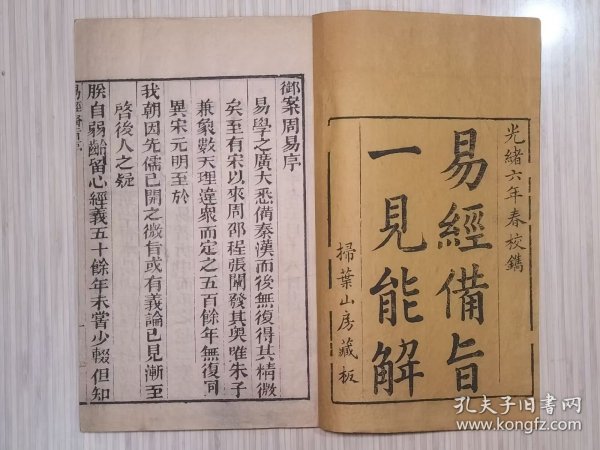 光緒六年春校鐫
易經備旨
一見能解
掃葉山房藏板
御案周易序
易學之廣大悉備秦漢而後無復得其精微
矣至有宋以來周邵程張闡發其奧唯朱子
兼象數天理違衆而定之五百餘年無復同
異宋元明至於
我朝因先儒已開之微旨或有議論已見漸至
啓後人之疑
朕自弱齡留心經義五十餘年未嘗少輟但知
孔夫子旧书网
www.kongfz.com